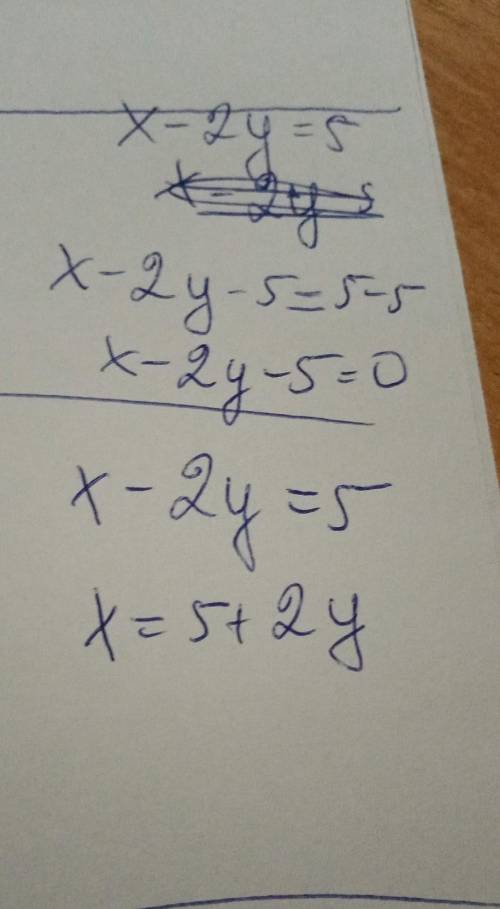 x - 2y = 5
x - 2y - 5 = 5 - 5
x - 2y - 5 = 0
x - 2y = 5
x = 5 + 2y